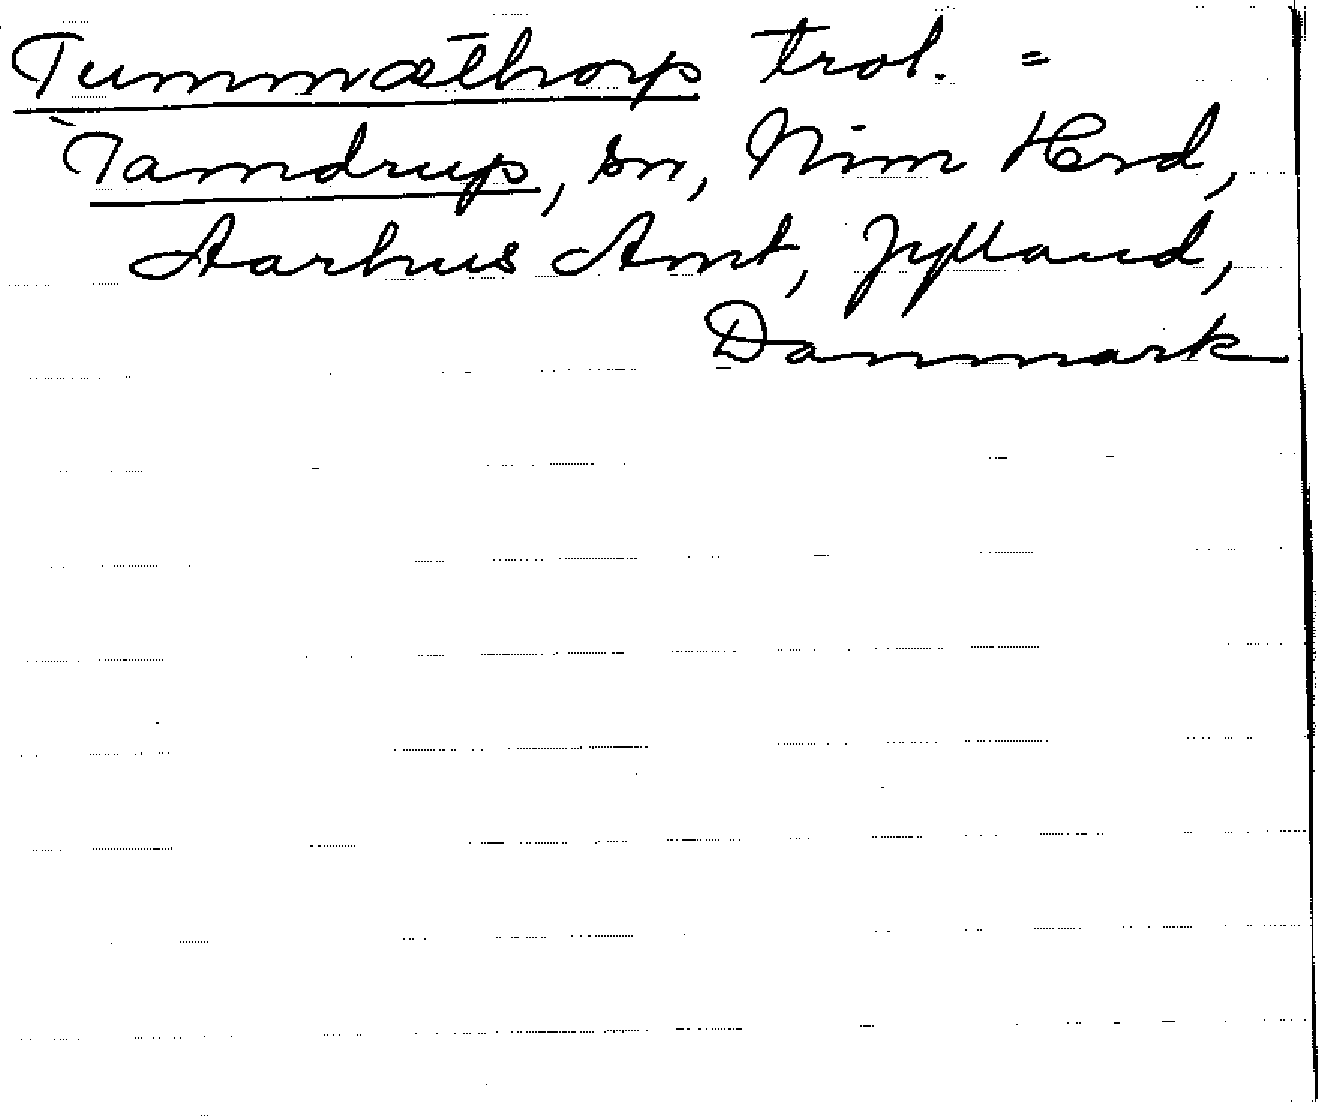 Tummæthorp trol. =
Tamdrup, sn, Nim Herd,
Aarhus Amt, Jylland,
Danmark